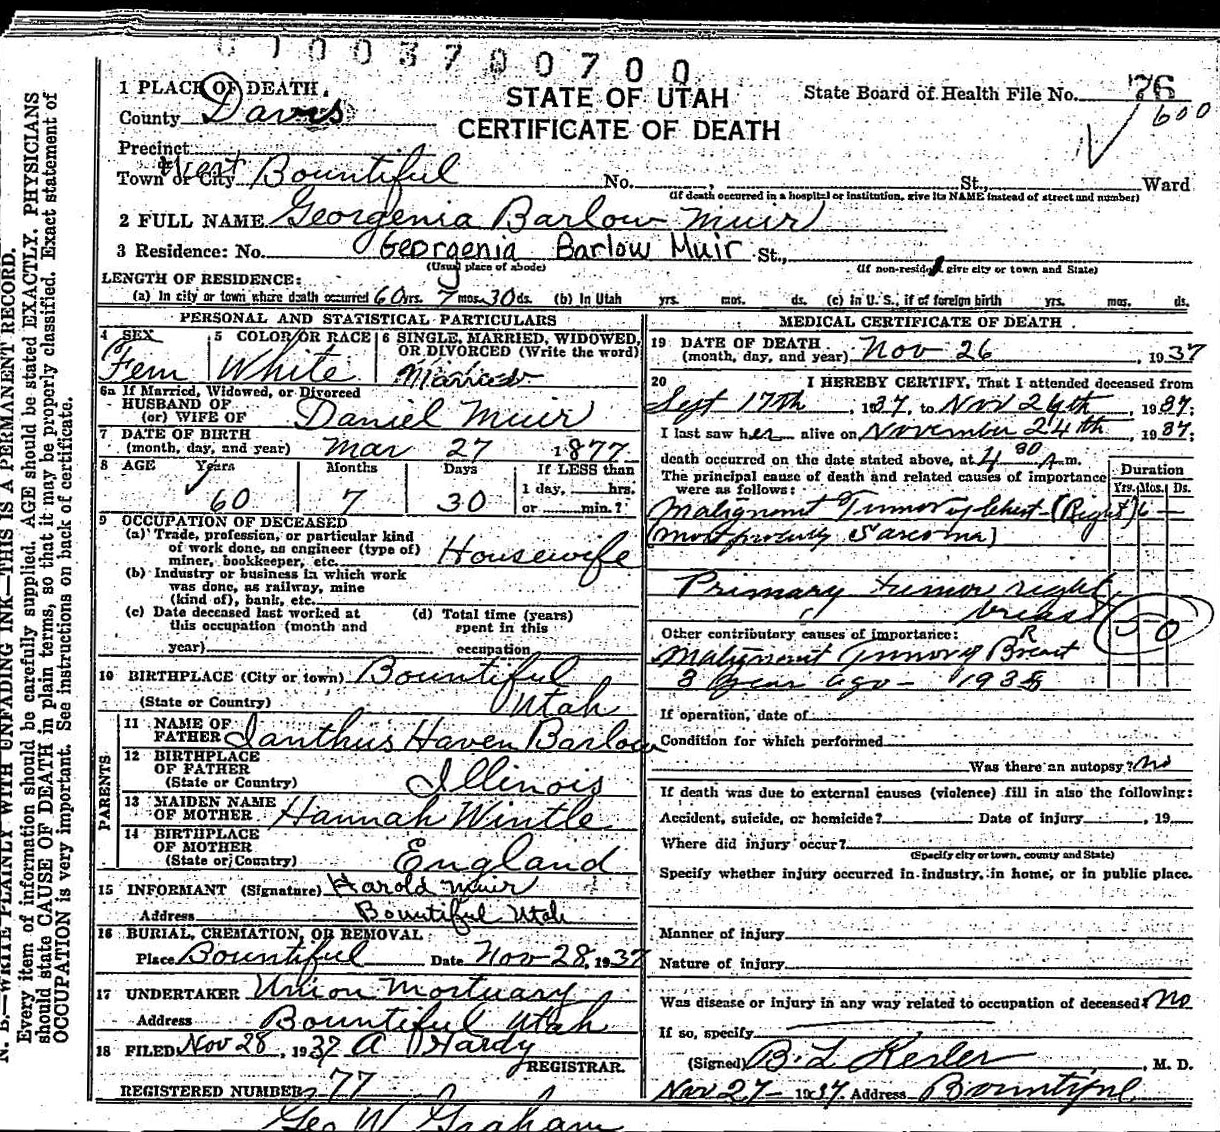 6 1 0 0 3 7 9 0 0 7 0 0
1 PLACE OF DEATH.
County Davis
STATE OF UTAH
CERTIFICATE OF DEATH
State Board of Health File No. 76
600
Precinct
Town or City West Bountiful No. , St., Ward
(If death occurred in a hospital or institution, give its NAME instead of street and number)
2 FULL NAME Georgenia Barlow Muir
3 Residence: No. Georgenia Barlow Muir St.,
(Usual place of abode) (If non-resident give city or town and State)
LENGTH OF RESIDENCE:
(a) In city or town where death occurred 60 yrs. 7 mos. 30 ds. (b) In Utah yrs. mos. ds. (c) in U. S., if of foreign birth yrs. mos. ds.
PERSONAL AND STATISTICAL PARTICULARS
4 SEX Fem
5 COLOR OR RACE White
6 SINGLE, MARRIED, WIDOWED, OR DIVORCED (Write the word) Married
6a If Married, Widowed, or Divorced
HUSBAND OF
(or) WIFE OF Daniel Muir
7 DATE OF BIRTH
(month, day, and year) Mar 27 1877
8 AGE Years Months Days If LESS than
60 7 30 1 day, hrs.
or min.?
9 OCCUPATION OF DECEASED
(a) Trade, profession, or particular kind
of work done, as engineer (type of)
miner, bookkeeper, etc. Housewife
(b) Industry or business in which work
was done, as railway, mine
(kind of), bank, etc.
(c) Date deceased last worked at
this occupation (month and
year)
(d) Total time (years)
spent in this
occupation
10 BIRTHPLACE (City or town) Bountiful
(State or Country) Utah
PARENTS
11 NAME OF
FATHER Ianthus Haven Barlow
12 BIRTHPLACE
OF FATHER
(State or Country) Illinois
13 MAIDEN NAME
OF MOTHER Hannah Wintle
14 BIRTHPLACE
OF MOTHER
(State or Country) England
15 INFORMANT (Signature) Harold Muir
Address Bountiful Utah
16 BURIAL, CREMATION, OR REMOVAL
Place Bountiful Date Nov 28, 1937
17 UNDERTAKER Union Mortuary
Address Bountiful Utah
18 FILED Nov 28, 1937 A Hardy
REGISTRAR.
REGISTERED NUMBER 77
Geo W Graham
MEDICAL CERTIFICATE OF DEATH
19 DATE OF DEATH
(month, day, and year) Nov 26, 1937
20 I HEREBY CERTIFY, That I attended deceased from
Sept 17th, 1937, to Nov 26th, 1937;
I last saw her alive on November 24th, 1937;
death occurred on the date stated above, at 4 30 A.m.
The principal cause of death and related causes of importance
were as follows:
Duration
Yrs. Mos. Ds.
Malignant Tumor of Chest (Right) 6 —
(most probably Sarcoma)
Primary tumor right
breast
50
Other contributory causes of importance:
Malignant Tumor of R Breast
3 year ago - 193
If operation, date of
Condition for which performed
Was there an autopsy? No
If death was due to external causes (violence) fill in also the following:
Accident, suicide, or homicide? Date of injury , 19
Where did injury occur?
(Specify city or town, county and State)
Specify whether injury occurred in industry, in home, or in public place.
Manner of injury
Nature of injury
Was disease or injury in any way related to occupation of deceased? No
If so, specify
(Signed) B. L. Kesler, M. D.
Nov 27 - 1937. Address Bountiful
N. B.—WRITE PLAINLY WITH UNFADING INK—THIS IS A PERMANENT RECORD.
Every item of information should be carefully supplied. AGE should be stated EXACTLY. PHYSICIANS
should state CAUSE OF DEATH in plain terms, so that it may be properly classified. Exact statement of
OCCUPATION is very important. See instructions on back of certificate.